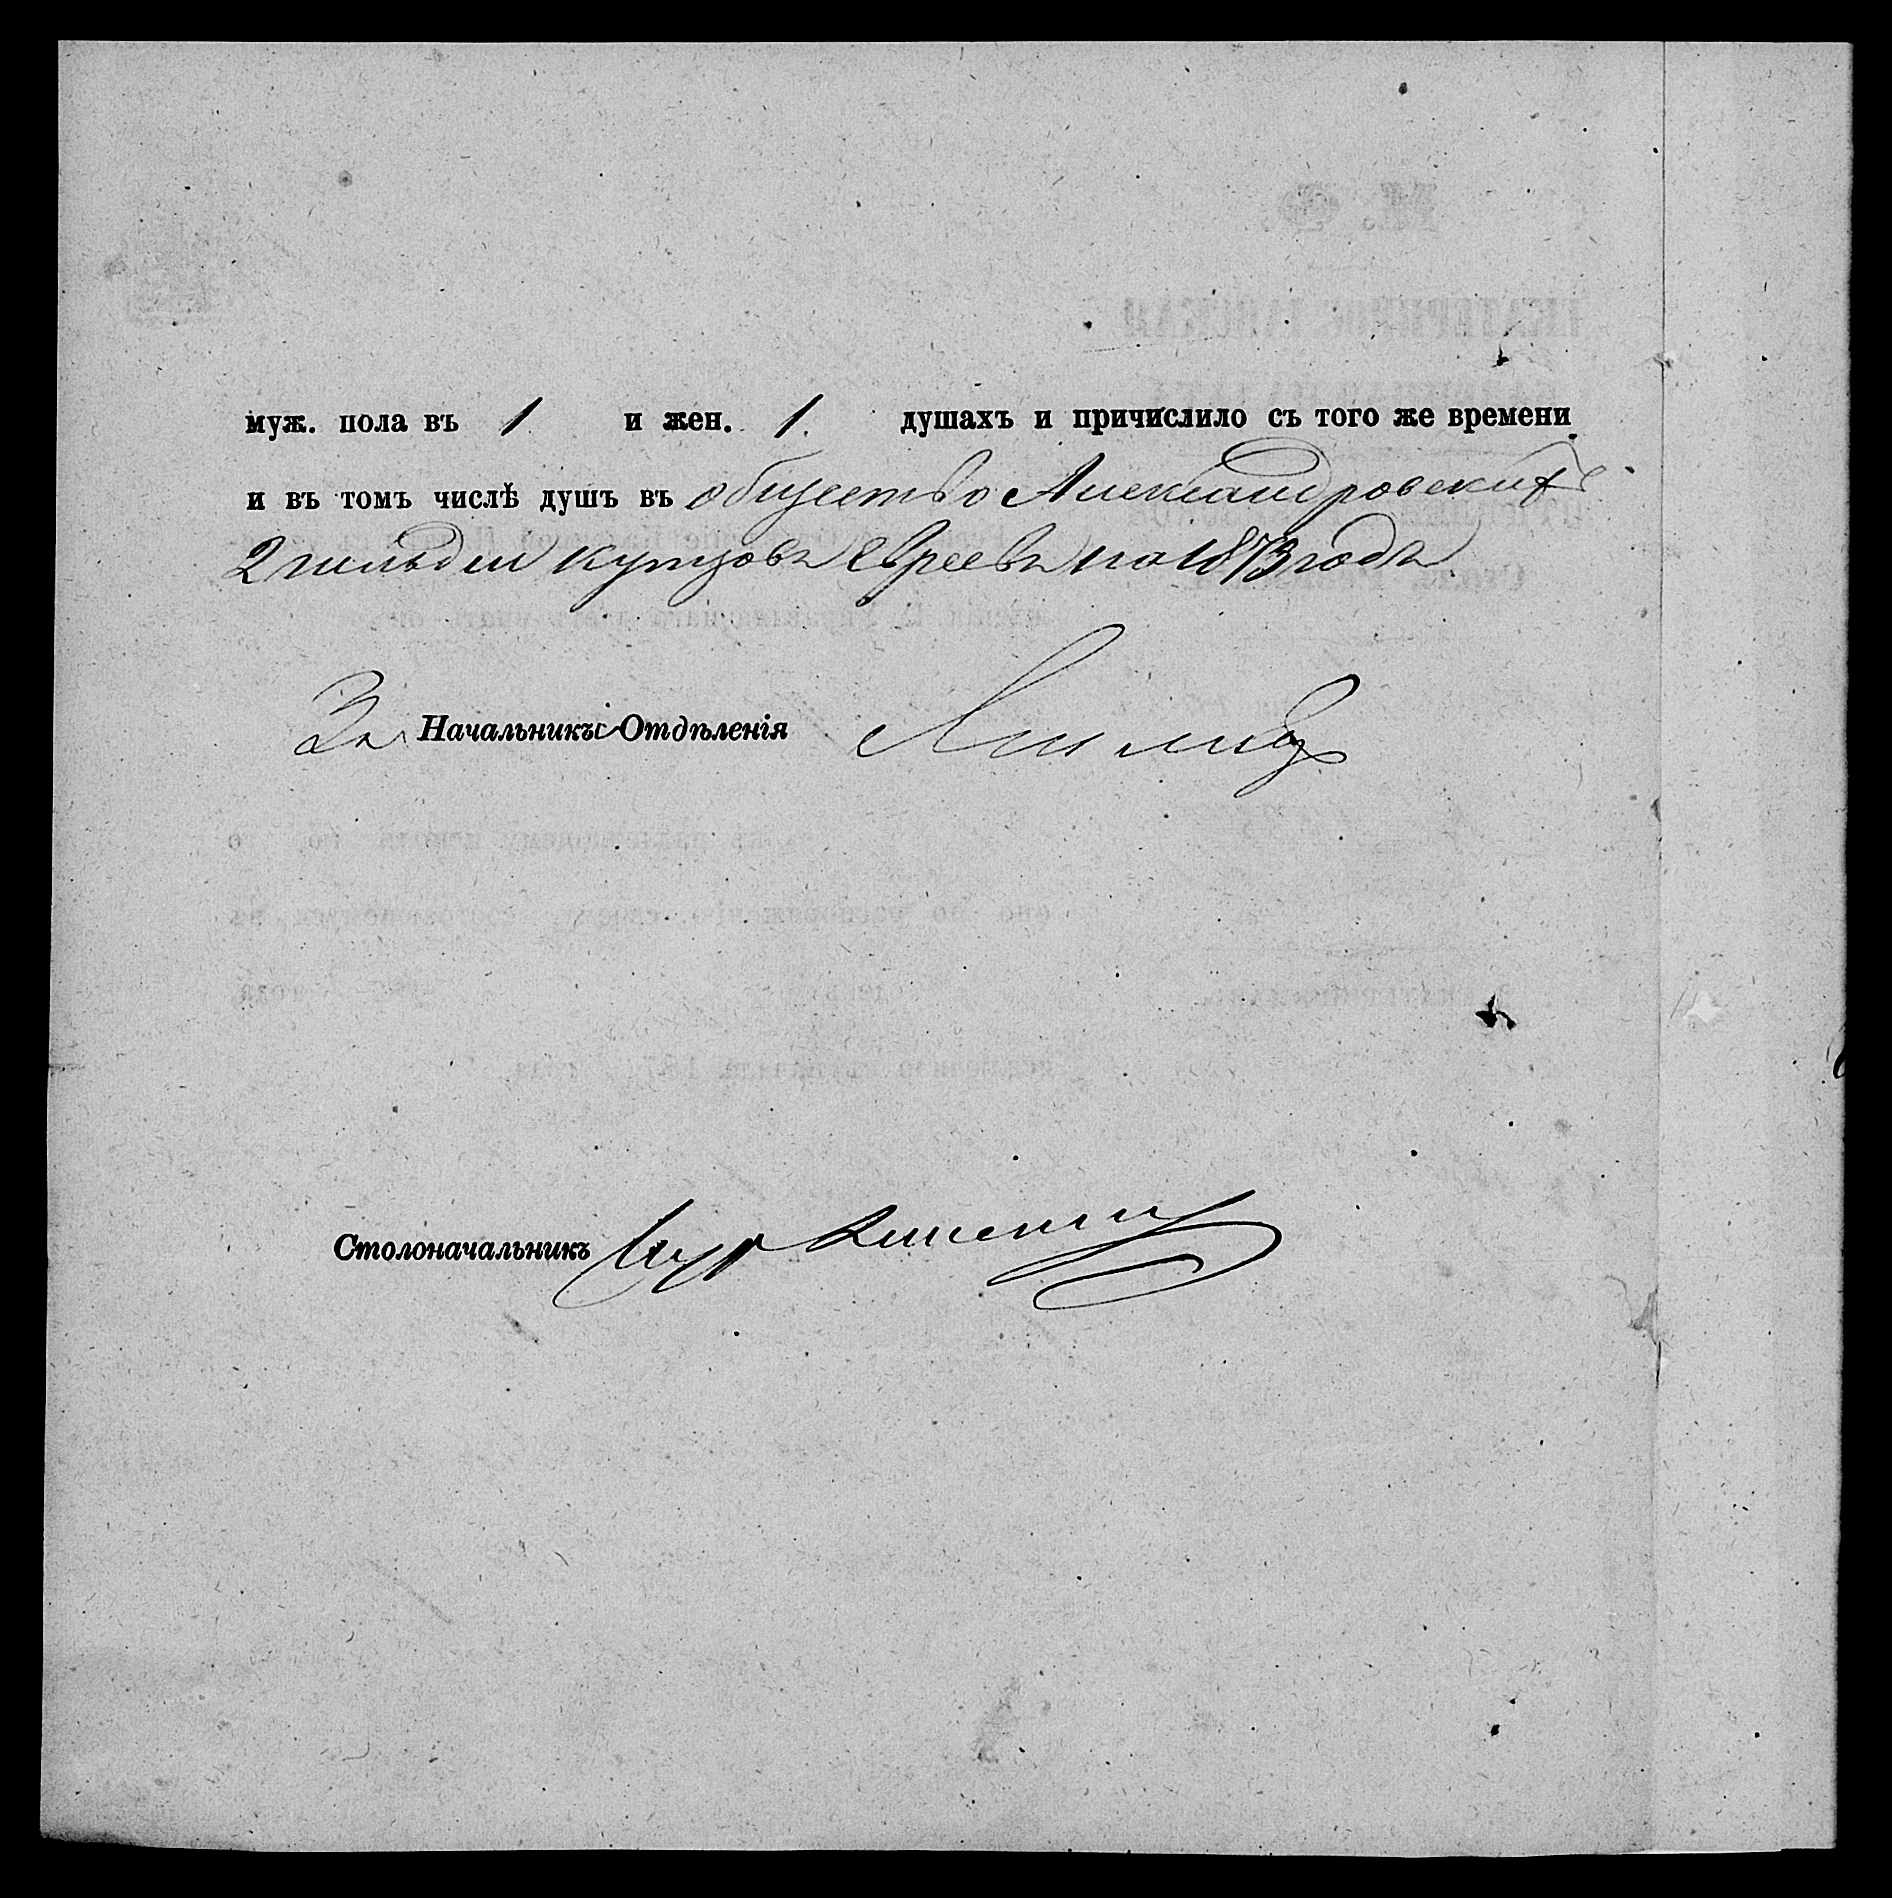 муж. пола въ 1 и жен. 1. душахъ и причислило съ того же времени
и въ томъ числѣ душъ въ общество Александровскихъ
2 гильдіи купцовъ евреевъ по 1873 годъ
За Начальника Отдѣленія
Столоначальникъ